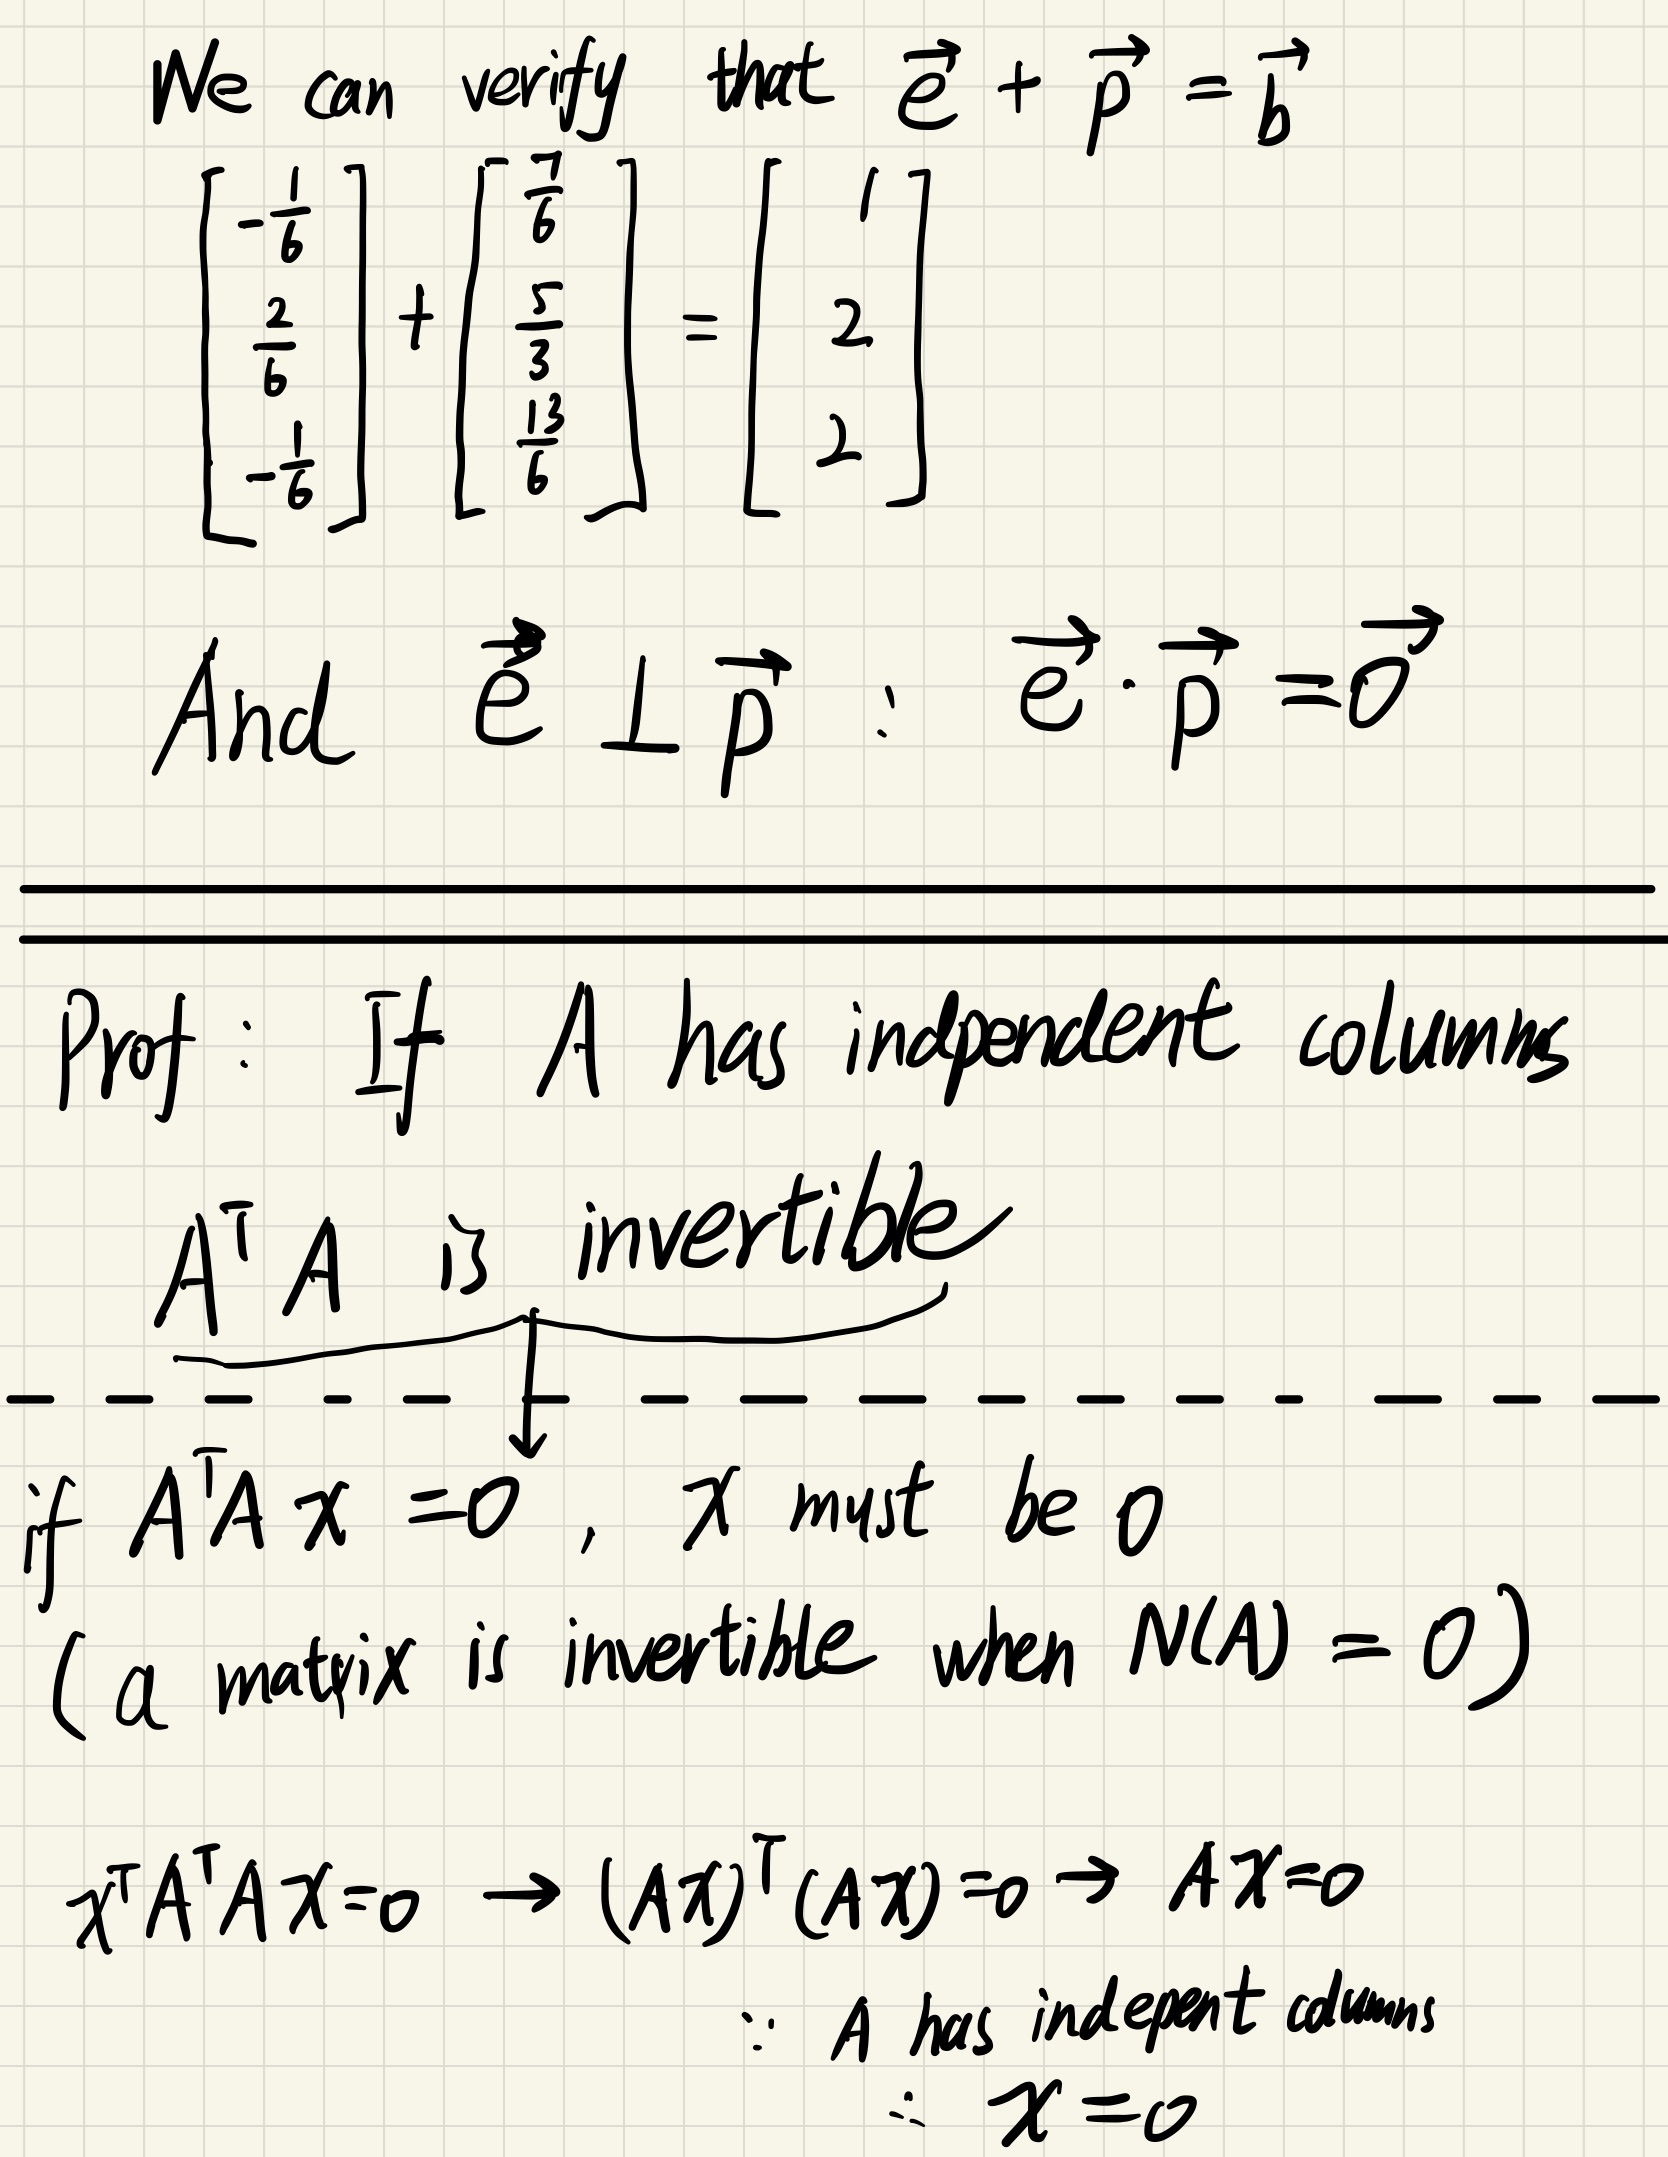 We can verify that $\vec{e} + \vec{p} = \vec{b}$
$\begin{bmatrix} -\frac{1}{6} \\ \frac{2}{6} \\ -\frac{1}{6} \end{bmatrix} + \begin{bmatrix} \frac{7}{6} \\ \frac{5}{3} \\ \frac{13}{6} \end{bmatrix} = \begin{bmatrix} 1 \\ 2 \\ 2 \end{bmatrix}$
And $\vec{e} \perp \vec{p}$ : $\vec{e} \cdot \vec{p} = \vec{0}$
Prof : If A has independent columns
$A^T A$ is invertible
if $A^T A x = 0$, x must be 0
(a matrix is invertible when N(A) = 0)
$x^T A^T A x = 0 \rightarrow (Ax)^T (Ax) = 0 \rightarrow Ax = 0$
∵ A has indepent columns
∴ x = 0